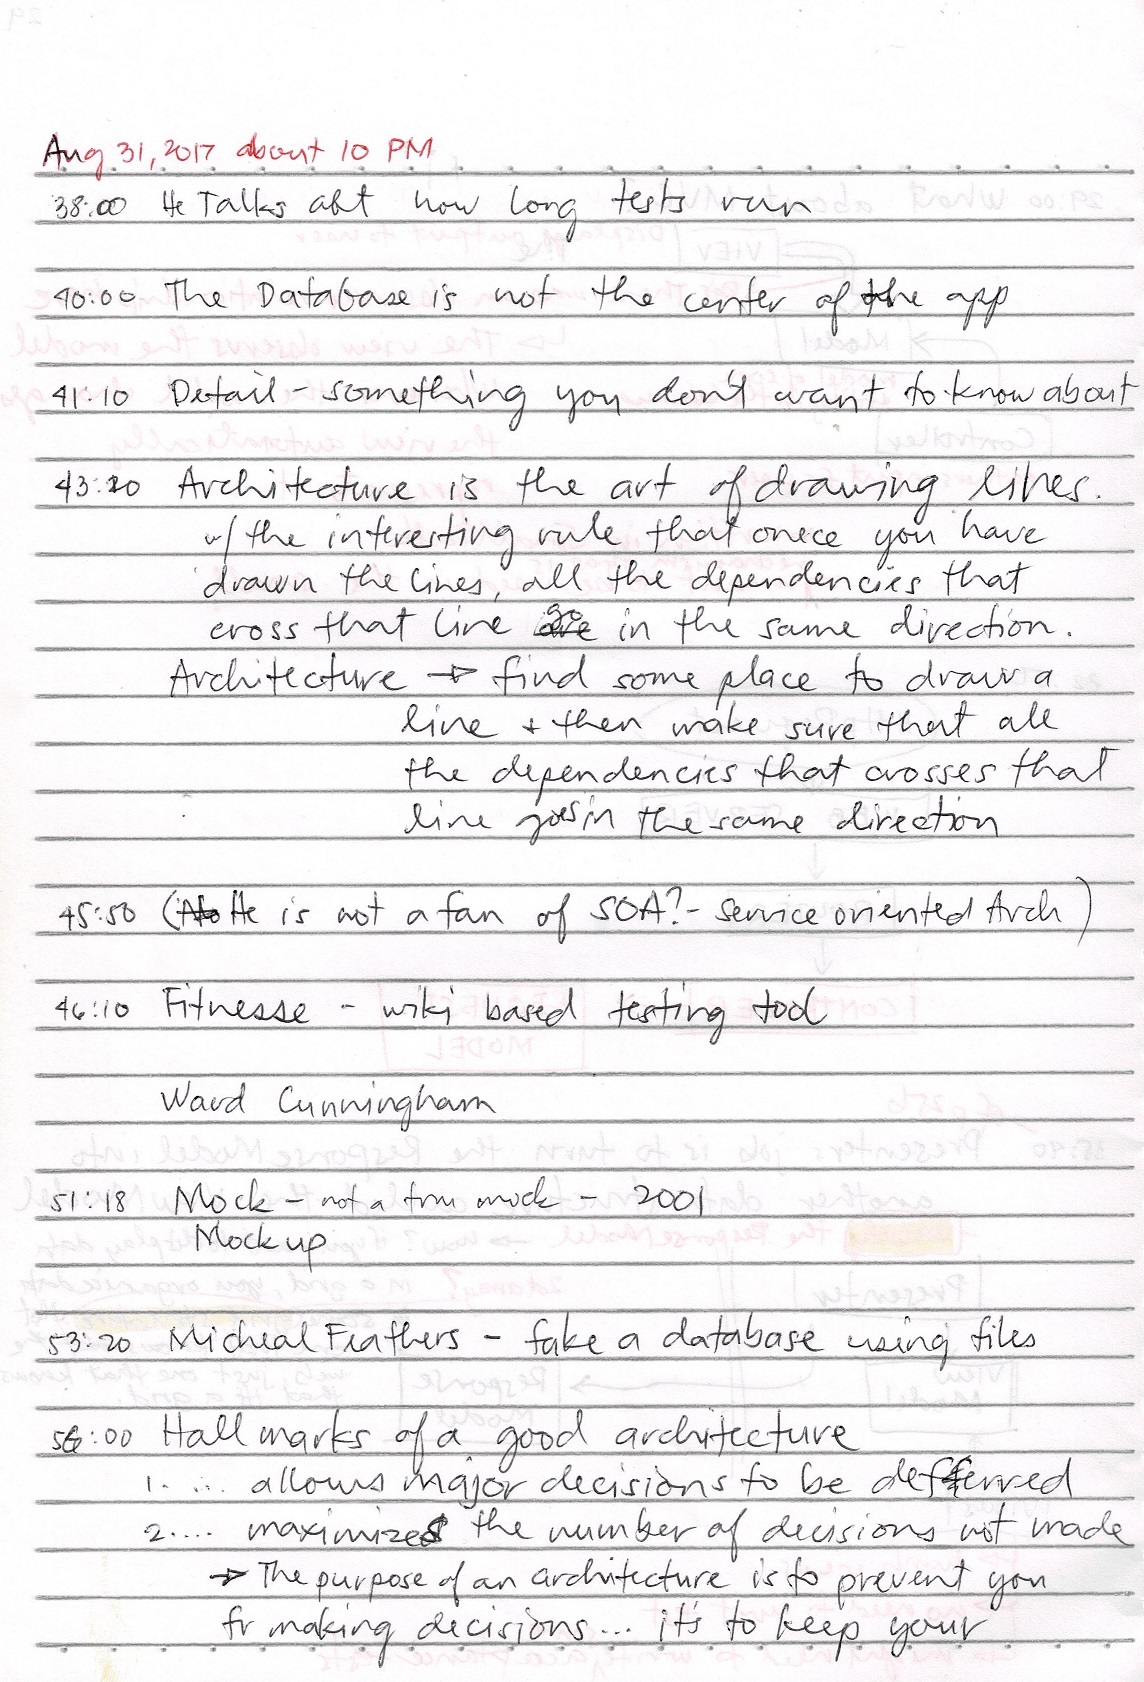 Aug 31, 2017 about 10 PM
38:00 He Talks abt how long tests run
40:00 The Database is not the center of the app
41:10 Detail - something you don't want to know about
43:20 Architecture is the art of drawing lines.
w/ the interesting rule that onece you have
drawn the lines, all the dependencies that
cross that line go in the same direction.
Architecture → find some place to draw a
line + then make sure that all
the dependencies that crosses that
line goes in the same direction
45:50 (He is not a fan of SOA? - Service oriented Arch)
46:10 Fitnesse - wiki based testing tool
Ward Cunningham
51:18 Mock - not a true mock - 2001
Mock up
53:20 Micheal Feathers - fake a database using files
56:00 Hall marks of a good architecture
1. ... allows major decisions to be defferred
2. ... maximizes the number of decisions not made
→ The purpose of an architecture is to prevent you
fr making decisions... it's to keep your